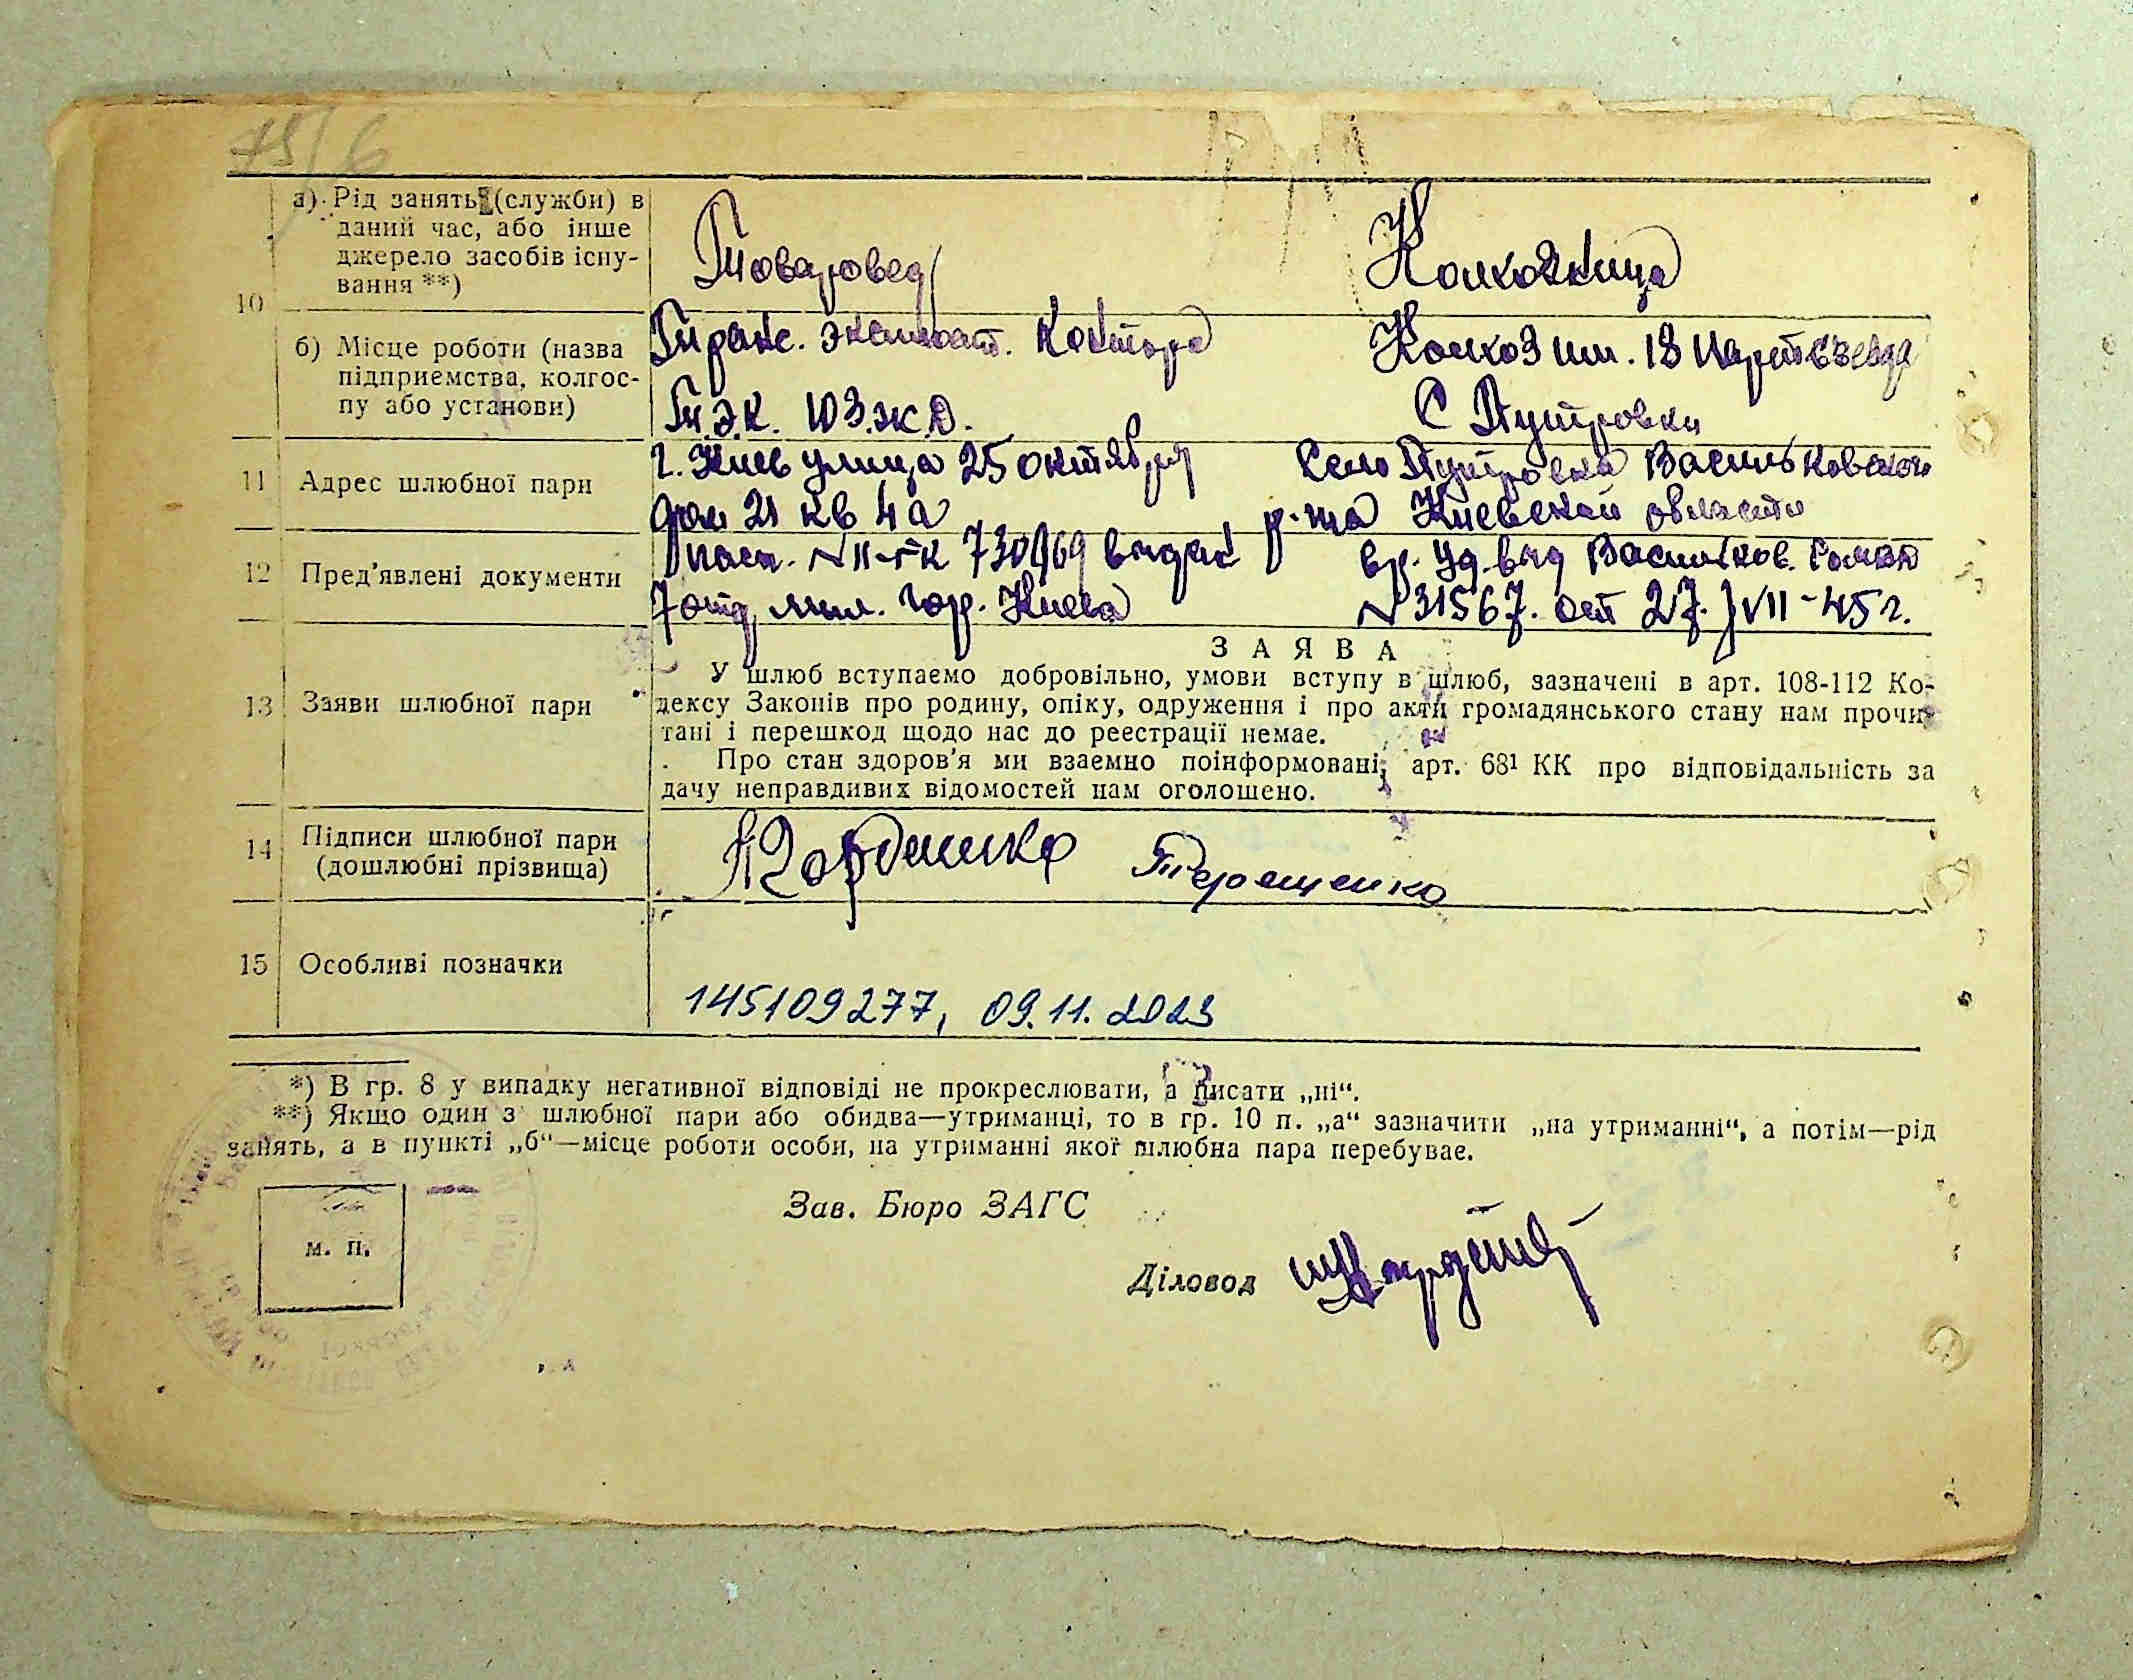 75/6
10
а) Рід занять (служби) в
даний час, або інше
джерело засобів існу-
вання **)
Товаровед
Колхозница
б) Місце роботи (назва
підприемства, колгос-
пу або установи)
Транс. эксплоат. Контора
Т.Э.К. ЮЗ.Ж.Д.
Колхоз им. 18 Партсъезда
С Путровки
11
Адрес шлюбної пари
г. Киев улица 25 октября
дом 21 кв 4а
Село Путровка Васильковского
р-на Киевской области
12
Пред'явлені документи
пасп. N II-ГК 730969 выдан
7 отд, мил. гор. Киева
вр. уд. выд Васильков.
N 31567. от 27. VII-45 г.
13
Заяви шлюбної пари
ЗАЯВА
У шлюб вступаємо добровільно, умови вступу в шлюб, зазначені в арт. 108-112 Ко-
дексу Законів про родину, опіку, одруження і про акти громадянського стану нам прочи-
тані і перешкод щодо нас до реестрації немае.
Про стан здоров'я ми взаемно поінформовані, арт. 68¹ КК про відповідальність за
дачу неправдивих відомостей нам оголошено.
14
Підписи шлюбної пари
(дошлюбні прізвища)
Терещенко
15
Особливі позначки
145109277, 09.11.2023
*) В гр. 8 у випадку негативної відповіді не прокреслювати, а писати „ні“.
**) Якщо один з шлюбної пари або обидва—утриманці, то в гр. 10 п. „а“ зазначити „на утриманні“, а потім—рід
занять, а в пункті „б“—місце роботи особи, на утриманні якої шлюбна пара перебувае.
м. п.
Зав. Бюро ЗАГС
Діловод